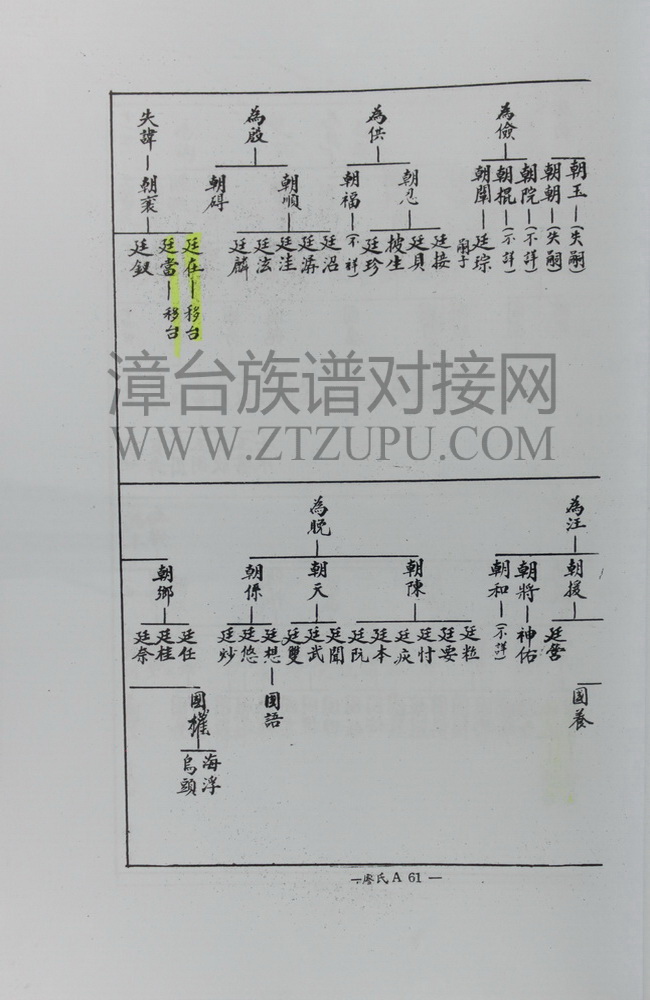 為儉
為供
為殷
失諱
朝玉
(失嗣)
朝朝
(失嗣)
朝院
(不詳)
朝棍
(不詳)
朝闈
朝忍
朝福
(不祥)
朝順
朝碍
朝袞
廷琮
嗣子
廷接
廷貝
披生
廷珍
廷沼
廷潺
廷洼
廷泫
廷麟
廷在
移台
廷當
移台
廷釵
漳台族谱对接网
WWW.ZTZUPU.COM
為汪
為脫
朝援
朝將
神佑
朝和
(不詳)
朝陳
朝天
朝係
朝鄉
廷營
廷粒
廷要
廷忖
廷疢
廷本
廷阮
廷聞
廷武
廷雙
廷想
廷悠
廷炒
廷任
廷桂
廷奈
國養
國語
國權
海浮
烏頭
—廖氏A 61 —